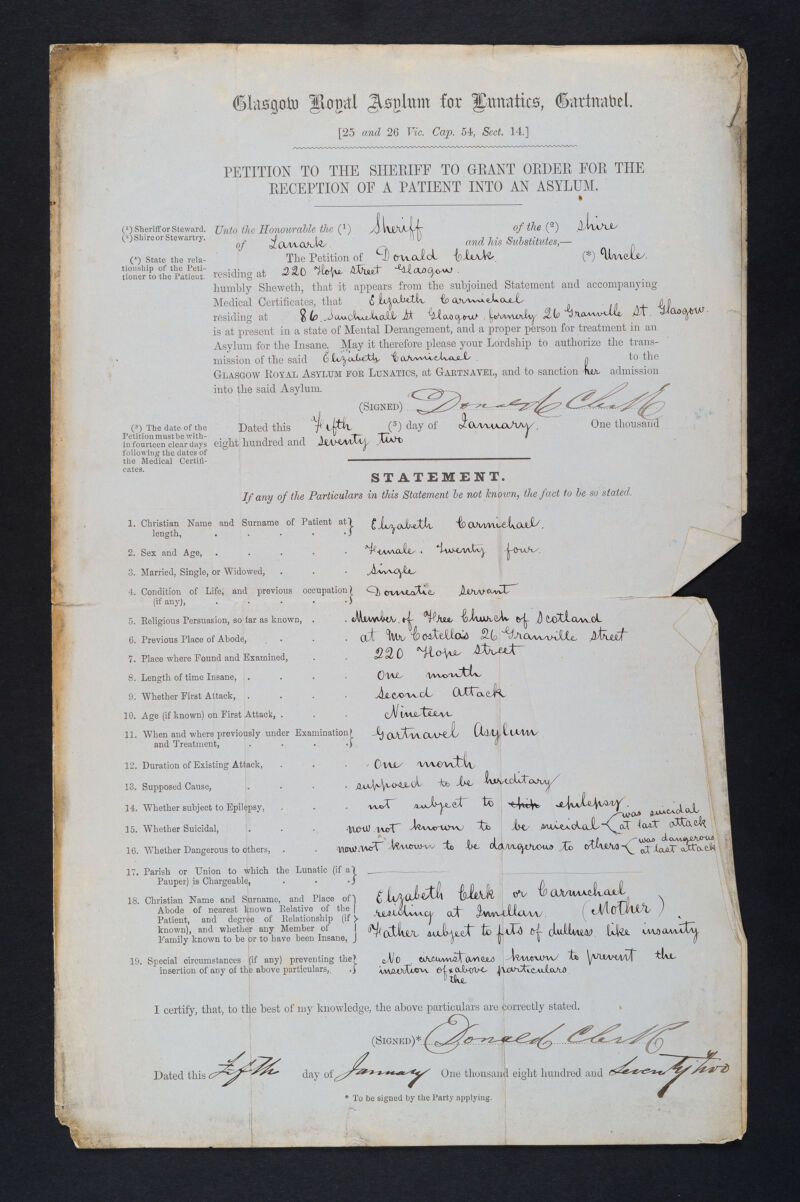 Glasgow Royal Asylum for Lunatics, Gartnavel.
[25 and 26 Vic. Cap. 54, Sect. 14.]
PETITION TO THE SHERIFF TO GRANT ORDER FOR THE
RECEPTION OF A PATIENT INTO AN ASYLUM.
(¹) Sheriff or Steward.
(²) Shire or Stewartry.
Unto the Honourable the (¹) Sheriff of the (²) Shire
of Lanark and his Substitutes,—
(*) State the rela-
tionship of the Peti-
tioner to the Patient.
The Petition of Donald Clerk (*) Uncle.
residing at 220 Hope Street Glasgow.
humbly Sheweth, that it appears from the subjoined Statement and accompanying
Medical Certificates, that Elizabeth Carmichael
residing at 86 Sauchiehall St Glasgow formerly 26 Granville St. Glasgow.
is at present in a state of Mental Derangement, and a proper person for treatment in an
Asylum for the Insane. May it therefore please your Lordship to authorize the trans-
mission of the said Elizabeth Carmichael. to the
GLASGOW ROYAL ASYLUM FOR LUNATICS, at GARTNAVEL, and to sanction her admission
into the said Asylum.
(SIGNED) Donald Clerk
(³) The date of the
Petition must be with-
in fourteen clear days
following the dates of
the Medical Certifi-
cates.
Dated this Fifth (³) day of January. One thousand
eight hundred and Seventy two
STATEMENT.
If any of the Particulars in this Statement be not known, the fact to be so stated.
1. Christian Name and Surname of Patient at
length, Elizabeth Carmichael.
2. Sex and Age, Female. Twenty four.
3. Married, Single, or Widowed, Single
4. Condition of Life, and previous occupation
(if any), Domestic Servant
5. Religious Persuasion, so far as known, Member of Free Church of Scotland
6. Previous Place of Abode, at Mr Costella's 26 Granville Street
7. Place where Found and Examined, 220 Hope Street
8. Length of time Insane, One month
9. Whether First Attack, Second Attack
10. Age (if known) on First Attack, Nineteen
11. When and where previously under Examination
and Treatment, Gartnavel Asylum
12. Duration of Existing Attack, One month
13. Supposed Cause, supposed to be hereditary
14. Whether subject to Epilepsy, not subject to epilepsy.
15. Whether Suicidal, now not known to be suicidal { was suicidal
at last attack
16. Whether Dangerous to others, now not known to be dangerous to others { was dangerous
at last attack
17. Parish or Union to which the Lunatic (if a
Pauper) is Chargeable,
18. Christian Name and Surname, and Place of
Abode of nearest known Relative of the
Patient, and degree of Relationship (if
known), and whether any Member of
Family known to be or to have been Insane,
Elizabeth Clerk or Carmichael
residing at Innellan. (Mother)
Father subject to fits of dullness like insanity
19. Special circumstances (if any) preventing the
insertion of any of the above particulars,
No circumstances known to prevent the
insertion of × above particulars
the
I certify, that, to the best of my knowledge, the above particulars are correctly stated.
(SIGNED)* Donald Clerk
Dated this Fifth day of January One thousand eight hundred and Seventy two
* To be signed by the Party applying.